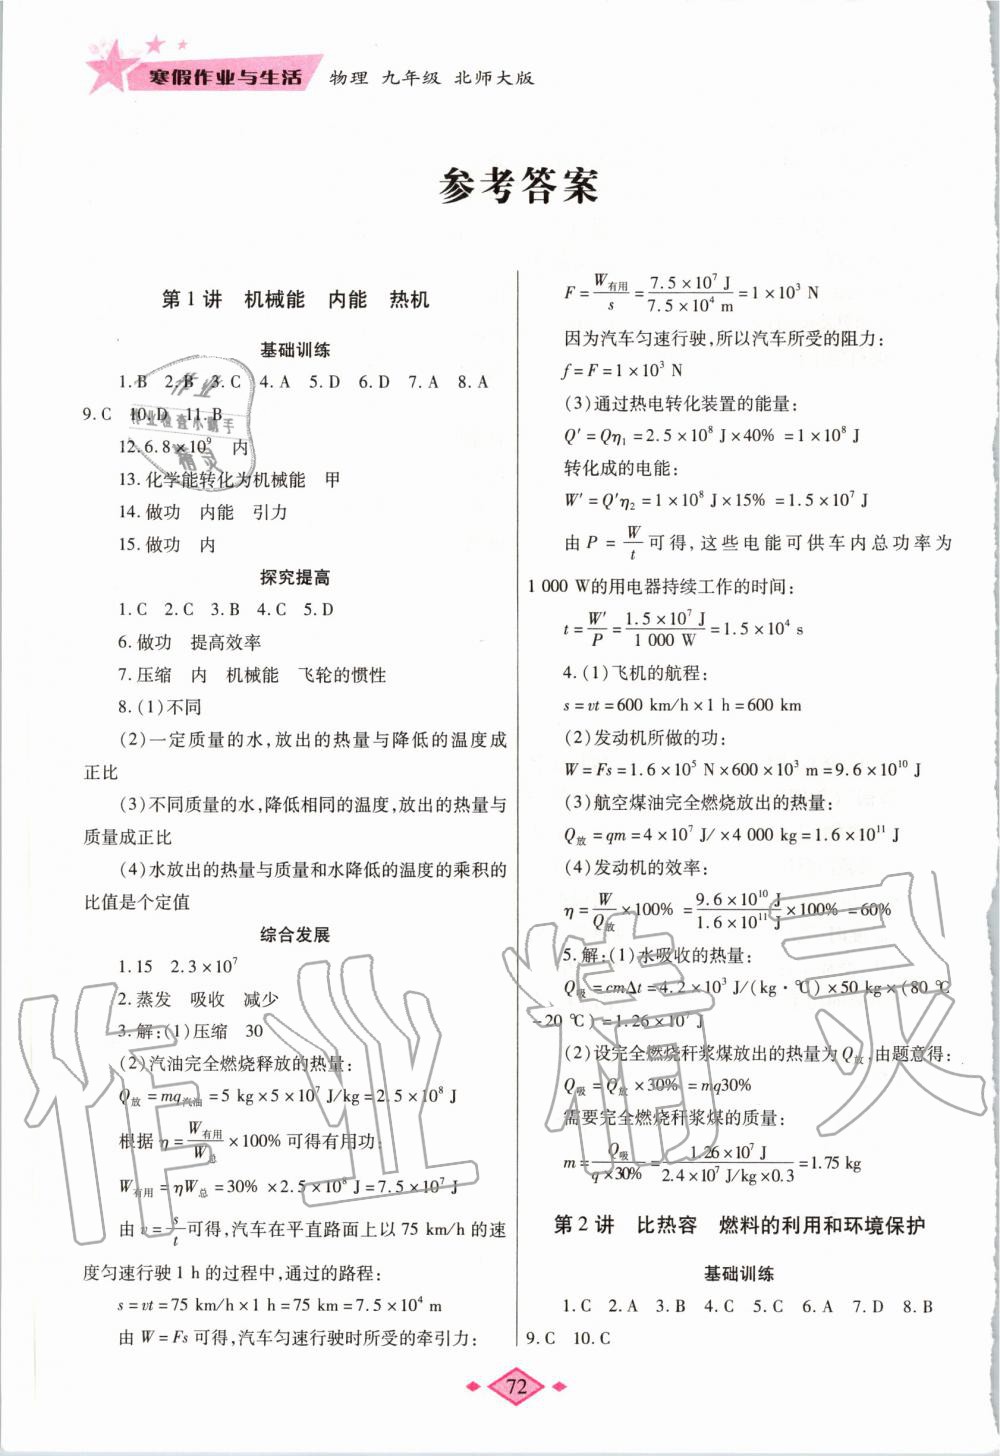 寒假作业与生活 物理 九年级 北师大版
参考答案
第1讲 机械能 内能 热机
基础训练
1.B 2.B 3.C 4.A 5.D 6.D 7.A 8.A
9.C 10.D 11.B
12.6.8×10⁹ 内
13.化学能转化为机械能 甲
14.做功 内能 引力
15.做功 内
探究提高
1.C 2.C 3.B 4.C 5.D
6.做功 提高效率
7.压缩 内 机械能 飞轮的惯性
8.(1)不同
(2)一定质量的水,放出的热量与降低的温度成
正比
(3)不同质量的水,降低相同的温度,放出的热量与
质量成正比
(4)水放出的热量与质量和水降低的温度的乘积的
比值是个定值
综合发展
1.15 2.3×10⁷
2.蒸发 吸收 减少
3.解:(1)压缩 30
(2)汽油完全燃烧释放的热量:
Q放=mq汽油=5 kg×5×10⁷ J/kg=2.5×10⁸ J
根据 η=W有用/W总×100%可得有用功:
W有用=ηW总=30% ×2.5×10⁸ J=7.5×10⁷ J
由 v=s/t可得,汽车在平直路面上以 75 km/h 的速
度匀速行驶 1 h 的过程中,通过的路程:
s=vt=75 km/h×1 h=75 km=7.5×10⁴ m
由 W=Fs 可得,汽车匀速行驶时所受的牵引力:
F=W有用/s=7.5×10⁷ J/7.5×10⁴ m=1×10³ N
因为汽车匀速行驶,所以汽车所受的阻力:
f=F=1×10³ N
(3)通过热电转化装置的能量:
Q′=Qη₁=2.5×10⁸ J×40% =1×10⁸ J
转化成的电能:
W′=Q′η₂=1×10⁸ J×15% =1.5×10⁷ J
由 P=W/t可得,这些电能可供车内总功率为
1 000 W的用电器持续工作的时间:
t=W′/P=1.5×10⁷ J/1 000 W=1.5×10⁴ s
4.(1)飞机的航程:
s=vt=600 km/h×1 h=600 km
(2)发动机所做的功:
W=Fs=1.6×10⁵ N×600×10³ m=9.6×10¹⁰ J
(3)航空煤油完全燃烧放出的热量:
Q放=qm=4×10⁷ J/×4 000 kg=1.6×10¹¹ J
(4)发动机的效率:
η=W/Q放×100% =9.6×10¹⁰ J/1.6×10¹¹ J×100% =60%
5.解:(1)水吸收的热量:
Q吸=cmΔt=4.2×10³ J/(kg·℃)×50 kg×(80 ℃
-20 ℃)=1.26×10⁷ J
(2)设完全燃烧秆浆煤放出的热量为Q放,由题意得:
Q吸=Q放×30% =mq30%
需要完全燃烧秆浆煤的质量:
m=Q吸/q×30%=1.26×10⁷ J/2.4×10⁷ J/kg×0.3=1.75 kg
第2讲 比热容 燃料的利用和环境保护
基础训练
1.C 2.A 3.B 4.C 5.C 6.A 7.D 8.B
9.C 10.C
72
作业
作业检查小助手
精灵
作业精灵